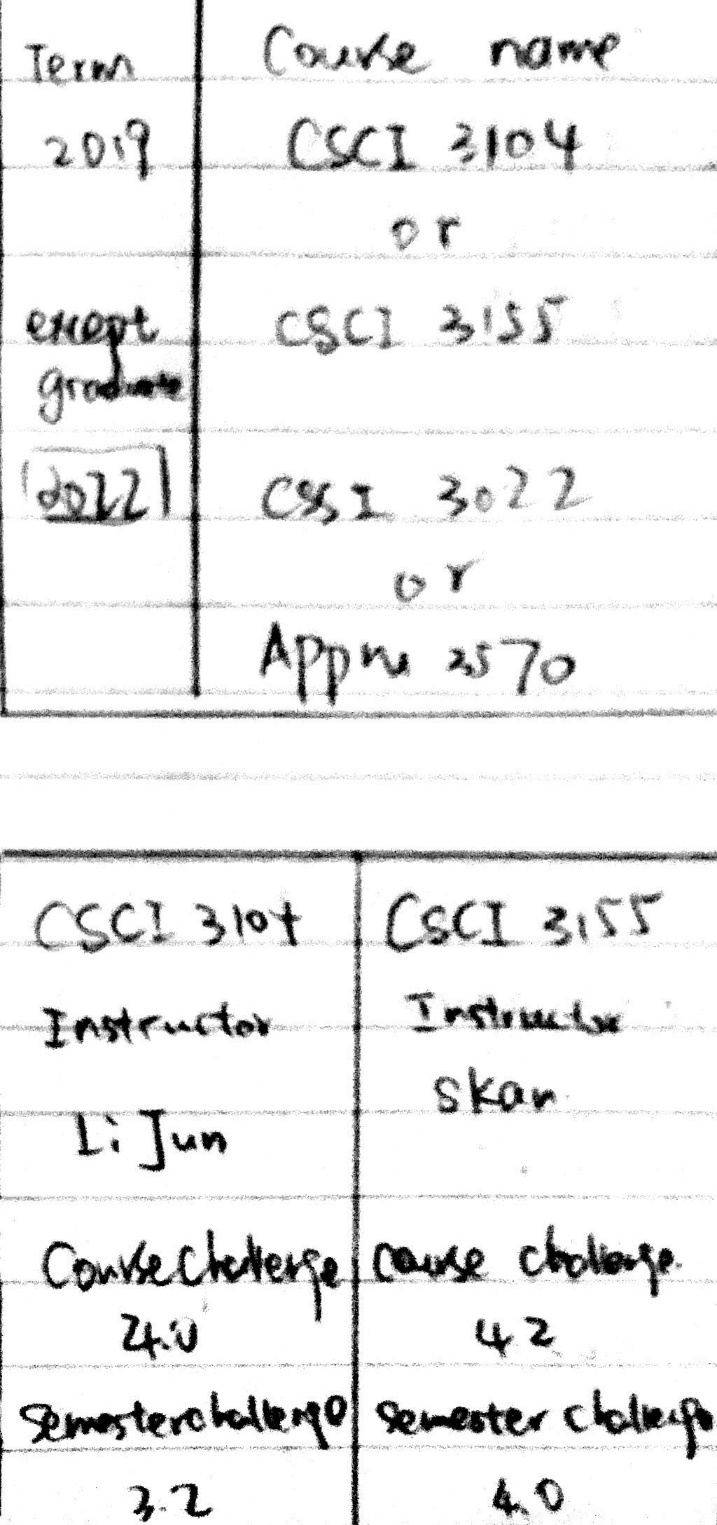 Term Course name
2019 CSCI 3104
or
except CSCI 3155
graduate
2022 CSCI 3022
or
Appm 2570
CSCI 3104 CSCI 3155
Instructor Instructor
Skan
Li Jun
Course challenge course challenge.
4.0 4.2
Semester challenge semester challenge
3.2 4.0